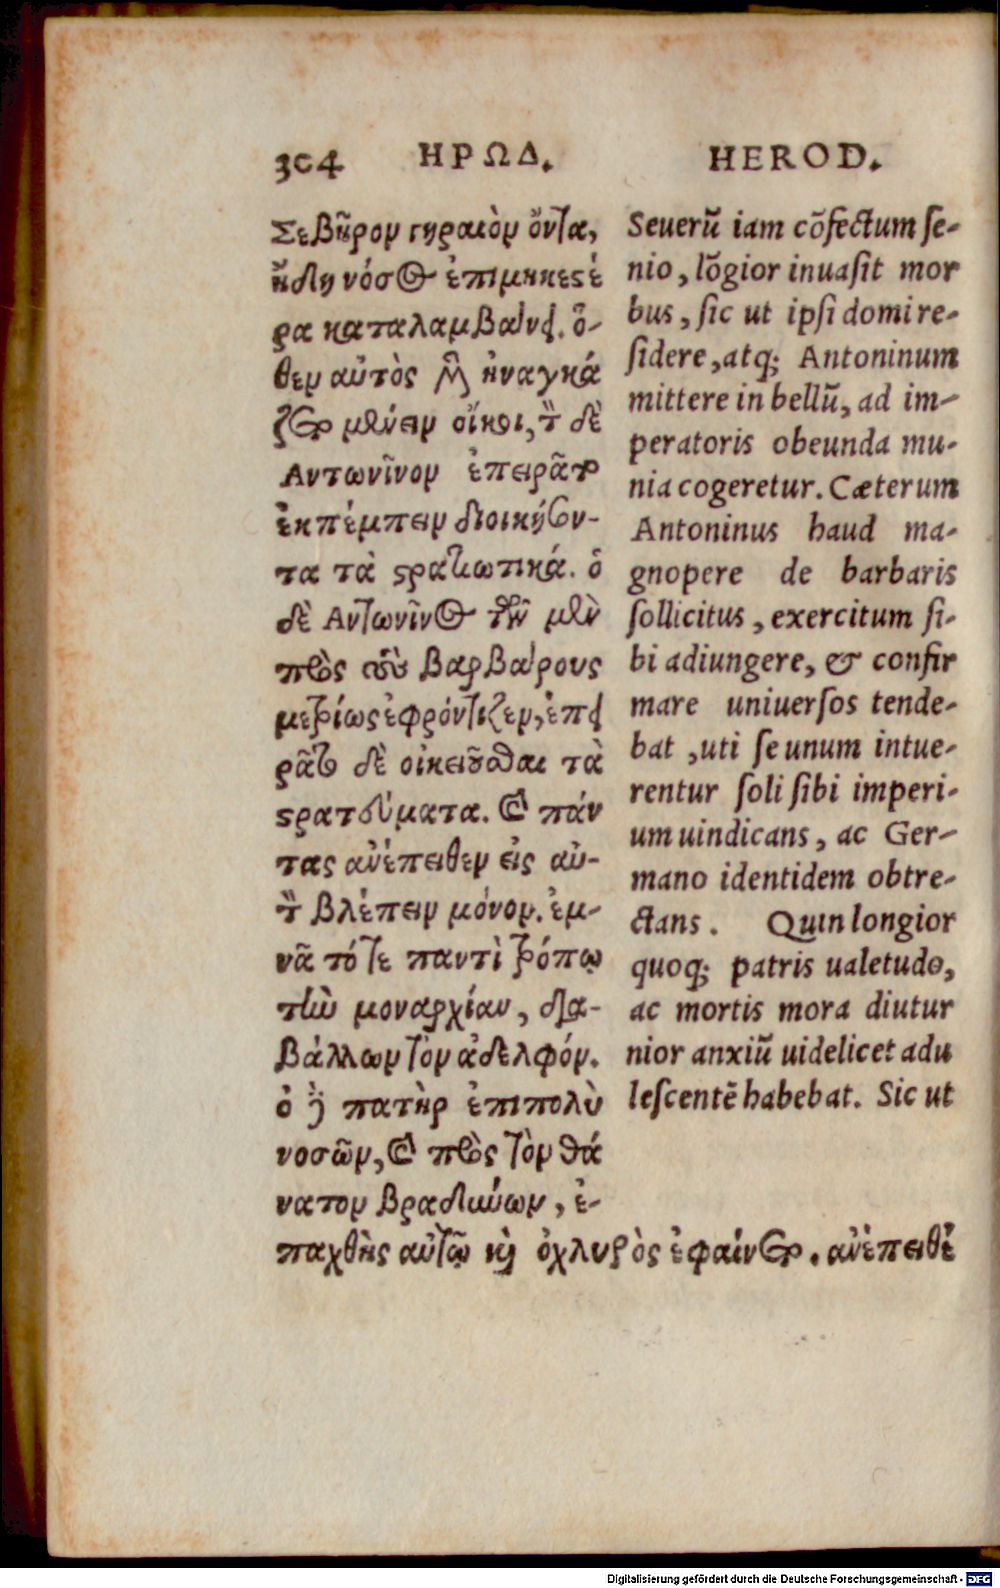 304 ΗΡΩΔ.
Σεβῆρον γηραιὸν ὄντα,
ἤδη νόσος ἐπιμηκεστέ
ρα καταλαμβάνει. ὅ-
θεν αὐτὸς μὲν ἠναγκά
ζετο μένειν οἴκοι, τὸν δὲ
Αντωνῖνον ἐπειρᾶτο
ἐκπέμπειν διοικήσον-
τα τὰ στρατιωτικά. ὁ
δὲ Αντωνῖνος τῶν μὲν
πρὸς τοὺς βαρβάρους
μετρίως ἐφρόντιζεν, ἐπει
ρᾶτο δὲ οἰκειοῦσθαι τὰ
στρατεύματα. καὶ πάν
τας ἀνέπειθεν εἰς αὐ-
τὸν βλέπειν μόνον. ἐμ-
νᾶτό τε παντὶ τρόπῳ
τὴν μοναρχίαν, δια-
βάλλων τὸν ἀδελφόν.
ὁ δὲ πατὴρ ἐπιπολὺ
νοσῶν, καὶ πρὸς τὸν θά
νατον βραδύνων, ἐ-
παχθὴς αὐτῷ καὶ ὀχληρὸς ἐφαίνετο. ἀνέπειθέ
HEROD.
Seuerū iam cōfectum ſe-
nio, lōgior inuaſit mor
bus, ſic ut ipſi domi re-
ſidere, atq; Antoninum
mittere in bellū, ad im-
peratoris obeunda mu-
nia cogeretur. Cæterum
Antoninus haud ma-
gnopere de barbaris
ſollicitus, exercitum ſi-
bi adiungere, & confir
mare uniuerſos tende-
bat, uti ſe unum intue-
rentur ſoli ſibi imperi-
um uindicans, ac Ger-
mano identidem obtre-
ctans. Quin longior
quoq; patris ualetudo,
ac mortis mora diutur
nior anxiū uidelicet adu
leſcentē habebat. Sic ut
Digitalisierung gefördert durch die Deutsche Forschungsgemeinschaft - DFG